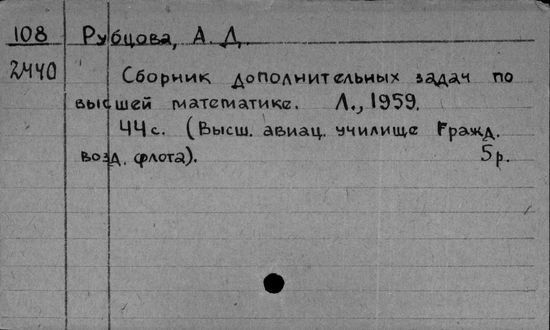 108 Рубцова, А. Д.
2440 Сборник дополнительных задач по
высшей математике. Л., 1959.
44 с. (Высш. авиац. училище Гражд.
возд. флота). 5 р.